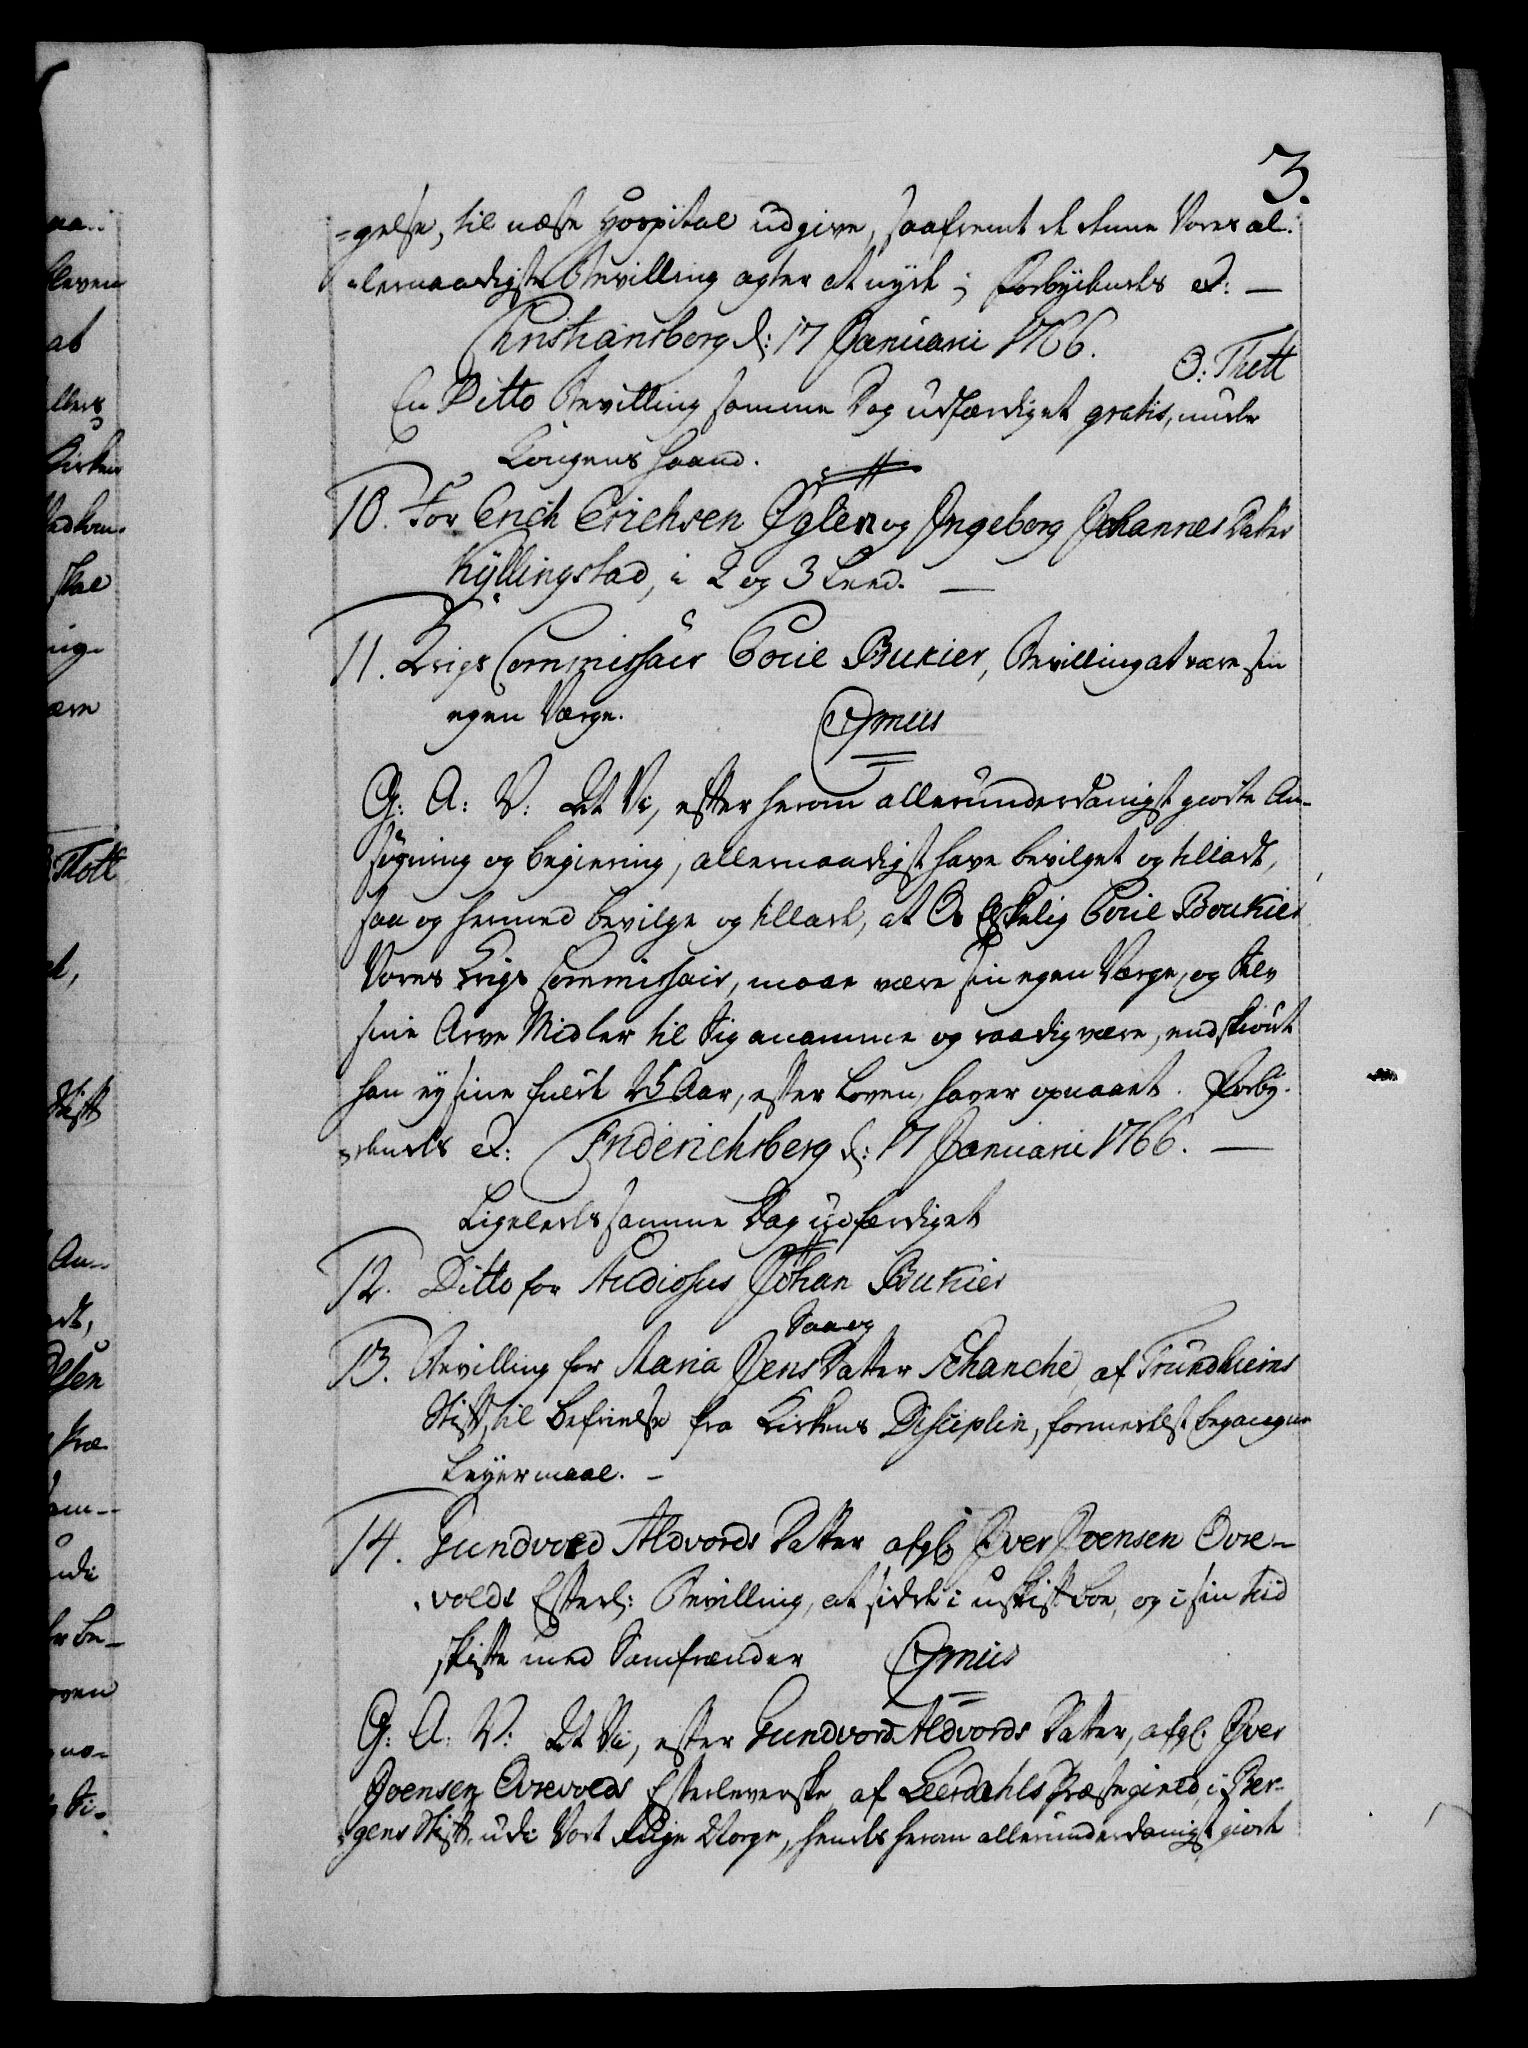 3.
=gelse, til næste Hospital udgive, saafremt de denne Vores al-
=lernaadigste Bevilling agter at nyde; Forbydendes &: —
Christiansborg d: 17 Januarii 1766.
O: Thott
En Ditto Bevilling samme Dag udfærdiget gratis, under
Kongens Haand.
10. For Erich Erichsen Øglen og Ingeborg Johannes Datter
Kyllingstad, i 2 og 3 Leed. —
11. Krigs Commissair Boukier, Bevilling at være sin
egen Værge.
Qvmus
G: A: V: At Vi, efter herom allerunderdanigst giorte An-
søgning og begiering, allernaadigst have bevilget og tilladt,
saa og hermed bevilge og tillade, at Os Elskelig Boukier
Vores Krigs Commissair, maae være sin egen Værge, og selv
sine Arve Midler til sig anamme og raadig være, endskiønt
han ey sine fulde 25 Aar, efter Loven, haver opnaaet. Forby-
=dendes &: Friderichsberg d: 17 Januarii 1766. —
Ligeledes samme Dag udfærdiget
12. Ditto for Studiosus Johan Bukier
Saa og
13. Bevilling for Maria Jens Datter Schanche, af Trundhiems
Stift, til befrielse fra Kirkens Disciplin, formedelst begangne
Leyermaal. —
14. Gundvord Aldvords Datter afgl: Iver Joensen Øvre-
volds Efterl: Bevilling, at sidde i uskift Boe, og i sin tiid
skifte med Samfrænder
Qvmus
G: A: V: At Vi, efter Gundvord Aldvords Datter, afgl. Iver
Joensen Øvrevolds Efterleverske af Leerdahls Præstegield, i Ber-
=gens Stift, udi Vort Rige Norge, hendes herom allerunderdanigst giorte